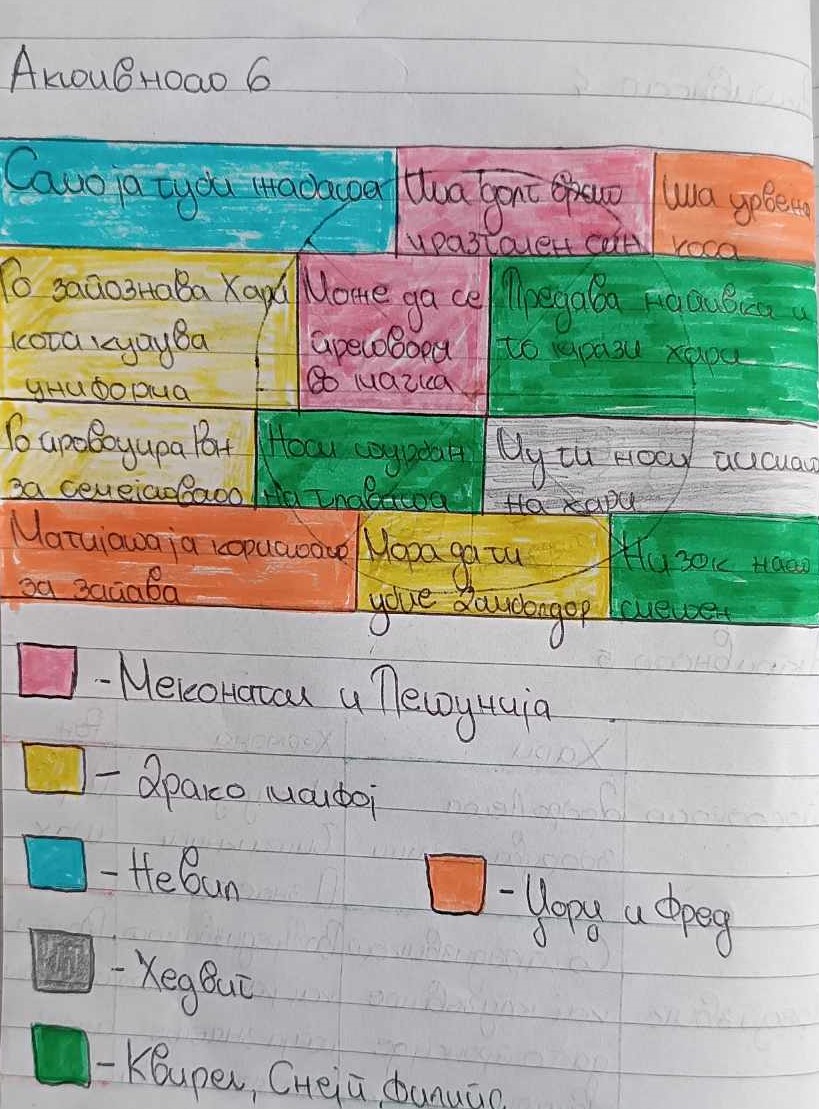 Активност 6
Само ја губи жабата
Има долг врат
и разгален син
Има црвена
коса
Го запознава Хари
кога купува
униформа
Може да се
претвори
во мачка
Предава напивки и
го мрази хари
Го провоцира Рон
за семејството
Носи
на главата
Му ги носи писмата
на хари
Магијата ја користат
за забава
Мора да ги
убие Дамболдор
Низок
смешен
-Меконагал и Петунија
- Драко малфој
- Невил
- Џорџ и Фред
- Хедвиг
- Квирел, Снејп,